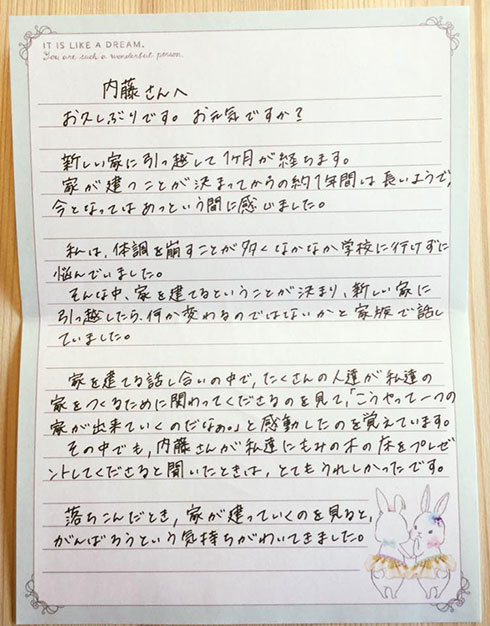 IT IS LIKE A DREAM.
You are such a wonderful person.
内藤さんへ
お久しぶりです。お元気ですか?
新しい家に引っ越して1ヶ月が経ちます。
家が建つことが決まってからの約1年間は長いようで、
今となってはあっという間に感じました。
私は、体調を崩すことが多くなかなか学校に行けずに
悩んでいました。
そんな中、家を建てるということが決まり、新しい家に
引っ越したら、何か変わるのではないかと家族で話し
ていました。
家を建てる話し合いの中で、たくさんの人達が私達の
家をつくるために関わってくださるのを見て、「こうやって一つの
家が出来ていくのだなぁ。」と感動したのを覚えています。
その中でも、内藤さんが私達にもみの木の床をプレゼ
ントしてくださると聞いたときは、とてもうれしかったです。
落ちこんだとき、家が建っていくのを見ると、
がんばろうという気持ちがわいてきました。